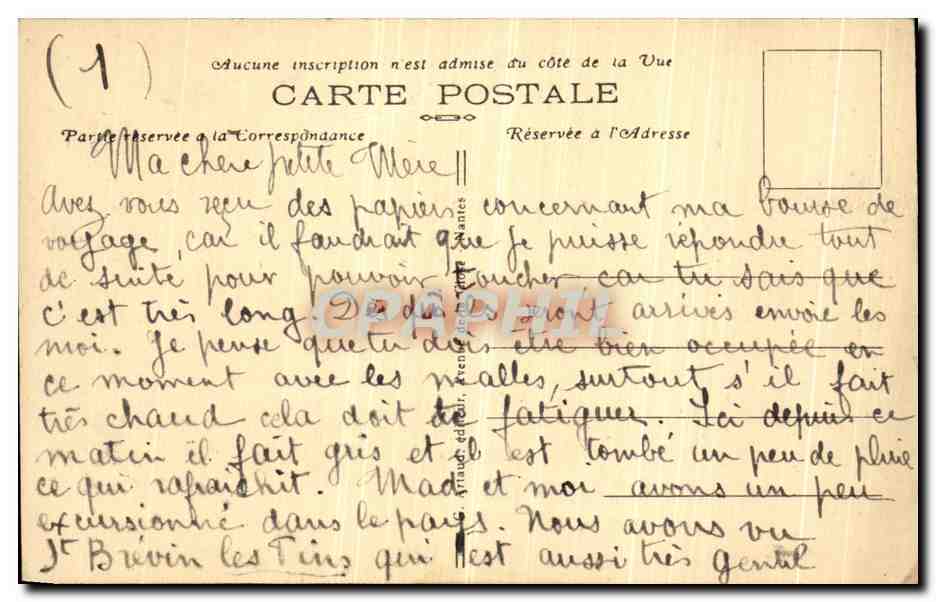 (1)
Aucune inscription n'est admise du côté de la Vue
CARTE POSTALE
Partie réservée a la Correspondance
Réservée à l'Adresse
Ma chère petite Mère
Avez vous reçu des papiers concernant ma bourse de
voyage, car il faudrait que je puisse répondre tout
de suite pour pouvoir toucher, car tu sais que
c'est très long. Dès qu'ils seront arrivés envoie les
moi. Je pense que tu dois être bien occupée en
ce moment avec les malles, surtout s'il fait
très chaud cela doit te fatiguer. Ici depuis ce
matin il fait gris et il est tombé un peu de pluie
ce qui rafraichit. Mad et moi avons un peu
excursionné dans le pays. Nous avons vu
St Brévin les Pins qui est aussi très gentil
Artaud, éditeur, Avenue de Nantes
CPAPHIL